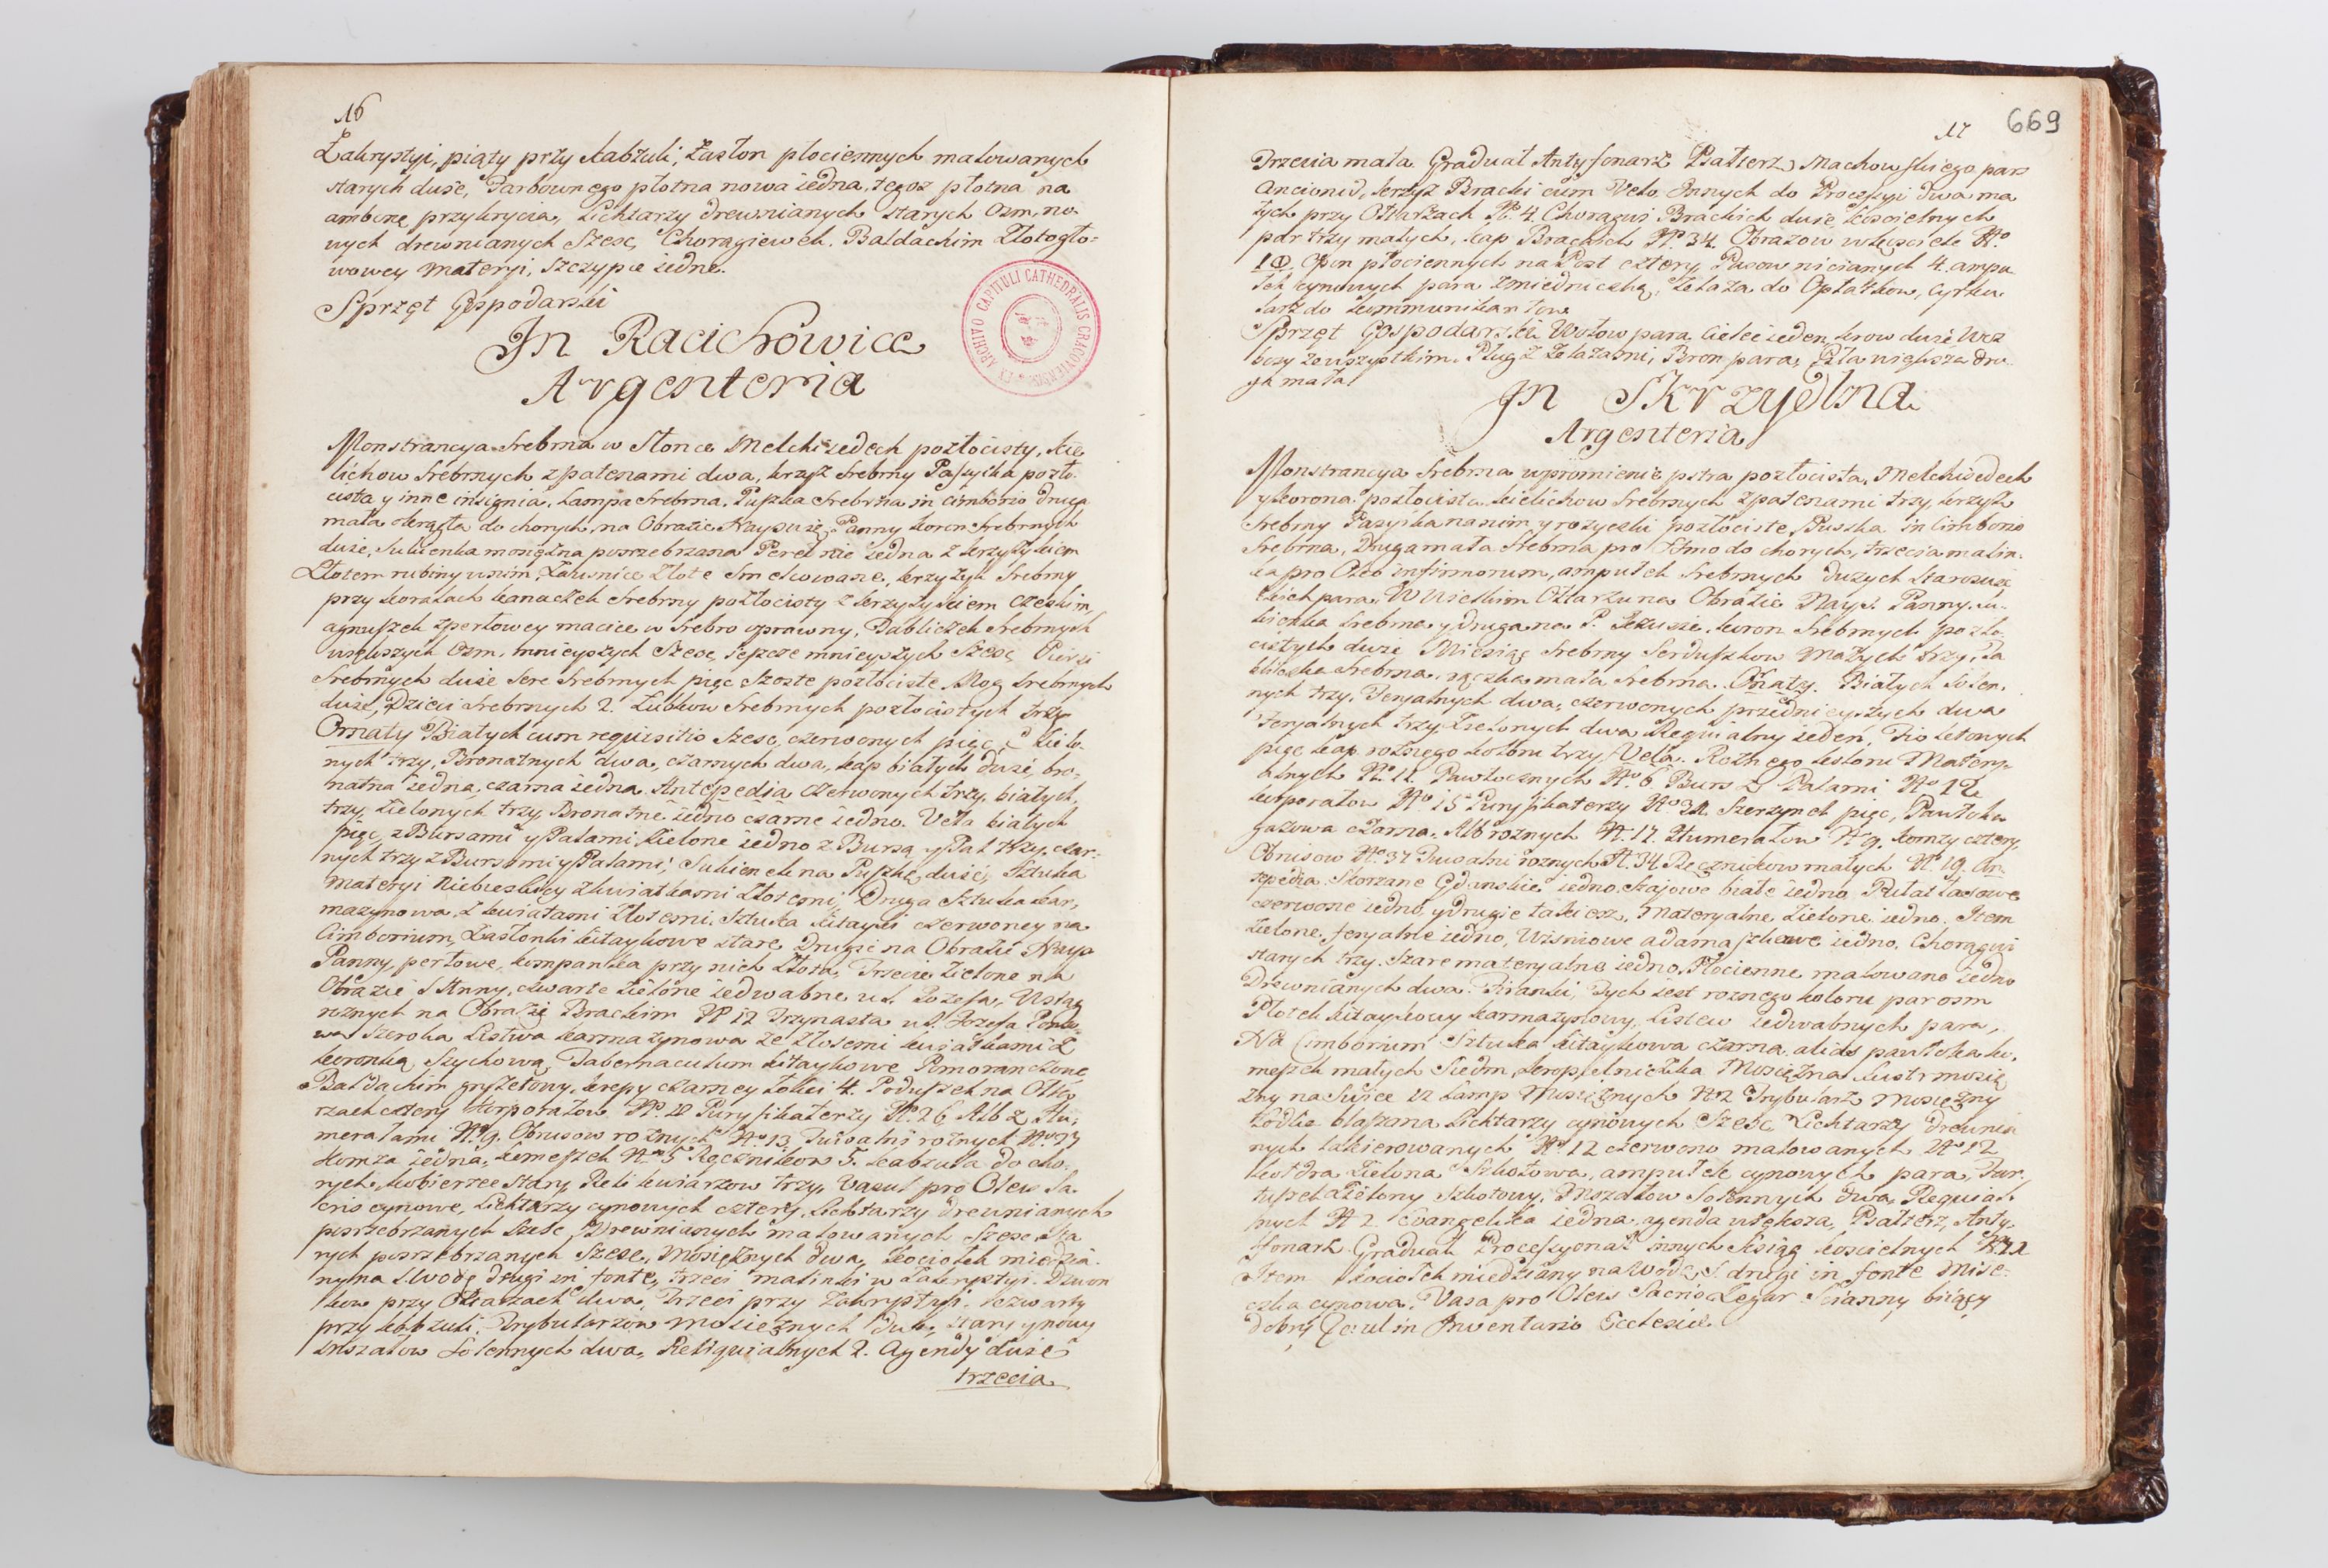 16
Zakrystyi, piąty przy Kabzuli, Zasłon płociennych malowanych
starych duże, Farbownego płotna nowa iedna, tegoz płotna na
ambonę przykrycia, Lichtarzy drewnianych starych Ozm, no-
wych drewnianych Szesc, Chorągiewek. Baldachim Złotogło-
wowey Materyi, szczypce iedne.
Sprzęt Gospodarski
In Raciechowice
Argenteria
EX ARCHIVO CAPITULI CATHEDRALIS CRACOVIENSIS
Monstrancya Srebrna w Słonce Melchisedech pozłocisty, Kie
lichow Srebrnych z patenami dwa, krzyż Srebrny Passyika pozło-
cista y inne insignia, Lampa Srebrna, Puszka Srebrna in cimborio druga
mała okrągła do chorych, na Obrazie Nayswię: Panny koron Srebrnych
duże, Sukienka mosiężna posrzebrzana Pereł nic iedna z krzyżykiem
Złotem rubiny w nim, Zausnice Złote Smelcowane, krzyżyk Srebrny
przy koralach kanaczek Srebrny pozłocisty z krzyżykiem Czeskim,
agnuszek z perłowey macice w Srebro oprawny, Tabliczek Srebrnych
większych Ozm, mnieyszych Szesc, ieszcze mnieyszych Szesc, Piersi
Srebrnych duże Serc Srebrnych pięc Szoste pozłociste, Nog Srebrnych
duże, Dzieci Srebrnych 2. Ząbkow Srebrnych pozłocistych trzy
Ornaty Białych cum requisitis Szesc, czerwonych pięc, Zielo-
nych trzy, Bronatnych dwa, czarnych dwa, kap białych duże, bro-
natna iedna, czarna iedna. Antepedia czerwonych trzy, białych
trzy, Zielonych trzy, Bronatne iedno czarne iedno. Vela białych
pięc, z Bursami y Palami, Zielone iedno z Bursą y Pal trzy, czar-
nych trzy z Bursami y Palami, Sukienek na Puszkę duże, Sztuka
Materyi Niebieskiey z kwiatkami Złotemi, Druga Sztuka kar-
mazynowa z kwiatami Złotemi, Sztuka kitayki czerwoney na
Cimborium, Zasłonki kitaykowe stare, Drugie na Obrazie Nays
Panny, perłowe, kompanka przy nich Złota, Trzecie Zielone na
Obrazie S Anny, czwarte Zielone iedwabne u S. Jozefa, Wstąg
roznych na Obrazie Brackim No 12 Trzynasta u S. Jozefa Ponso-
wa Szeroka Listwa karmazynowa ze Złotemi kwiatkami z
koronką Szychową, Tabernaculum kitaykowe Pomoranczowe
Baldachim gryzetowy, krepy czarney Łokci 4. Poduszek na Ołta-
rzach cztery Korporałow No. 18 Puryfikaterzy No. 26 Alb z Hu-
merałami No. 9. Obrusow roznych No 13 Tuwalni roznych No 23
Komza iedna, komeszek No 5 Ręcznikow 5. kabzula do cho-
rych, kobierzec Stary, Relikwiarzow trzy, Vascul pro Oleis Sa-
cris cynowe, Lichtarzy cynowych cztery, Lichtarzy drewnianych
posrzebrzanych Szesc, Drewnianych malowanych Szesc, Sta
rych posrzebrzanych Szesc, Mosiężnych dwa, Kociołek miedzia-
ny na S. Wodę drugi in fonte, trzeci malinki w Zakrystyi. Dzwon
kow przy Ołtarzach dwa, Trzeci przy Zakrystyi, czwarty
przy kabzuli, Trybularzow Mosiężnych dwa, stary y nowy
Mszałow Solennych dwa, Reliquialnych 2. Agendy duże
trzecia
17 669
Trzecia mała Graduał Antyfonarz Psałterz Machowskiego, par
Ancioned, krzyż Bracki cum Velo. Innych do Procesyi dwa ma
łych przy Ołtarzach No. 4. Chorągwi Brackich duże, koscielnych
par trzy małych, kap Brackich No. 34. Obrazow w kosciele No.
10. Opon płociennych na Post cztery, Pasow nicianych 4. ampu
łek cynowych para z miedniczką, Żelaza do Opłatkow, Cyrku-
larz do kommunikantow
Sprzęt Gospodarski Wołow para, Ciełe ieden, krow duże Woz
bosy ze wszystkim. Pług z Żelazami, Bron para, Piła większa dru-
ga mała
In Skrzydlna
Argenteria
Monstrancya Srebrna w promienie pstra pozłocista, Melchisedech
y korona pozłocista kielichow Srebrnych z patenami trzy, krzyżyk
Srebrny Pasyika na nim y rozyczki pozłociste, Puszka in Cimborio
Srebrna, Druga mała Srebrna pro SSmo do chorych, trzecia malin-
ka pro Oleo infirmorum, ampułek Srebrnych dużych staroswie
ckich para. W Wielkim Ołtarzu na Obrazie Nays. Panny Su-
kienka Srebrna y druga na P. Jezusie, koron Srebrnych pozło-
cistych duże Miesiąc Srebrny Serduszkow Małych trzy, Ta
bliczka Srebrna, rączka mała Srebrna. Ornaty. Białych Solen-
nych trzy, Feryalnych dwa, czerwonych przednieyszych dwa
Feryalnych trzy, Zielonych dwa Requialny ieden, Fioletowych
pięc kap roznego koloru trzy, Vela. Roznego koloru Matery-
alnych No. 11. Pawłocznych No. 6 Burs z Palami No 12
korporałow No 15 Puryfikaterzy No 31 Szerzynek pięc, Pawłoka
gazowa czarna, Alb roznych No. 17. Humerałow No 9. komzy cztery,
Obrusow No 37 Tuwalni roznych No. 34. Ręcznikow małych No. 19. An-
tepedia. Skorzane Gdanskie iedno, Kitajowe białe iedno, Półatłasowe
czerwone iedno, y drugie takiesz, Materyalne Zielone iedno. Item
Zielone feryalne iedno, Wisniowe adamaszkowe iedno, Chorągwi
starych trzy. Szare materyalne iedno, Płocienne malowane iedno
Drewnianych dwa. Firanki, Tych iest roznego koloru par osm
Płotek kitaykowy karmazynowy, Listew iedwabnych para,
Na Cimborium Sztuka kitaykowa czarna, alias pawłoka ko-
meszek małych Siedm, kropielniczka Mosiężna Lustr mosię
żny na Swice 12 Lamp Mosiężnych No 2 Trybularz Mosiężny
Łodka blaszana Lichtarzy cynowych Szesc Lichtarzy drewnia
nych lakierowanych, No 12 czerwono malowanych No 12
Kołdra Zielona Szkotowa, ampułek cynowych para, Fur-
tuszek Zielony Szkotowy. Mszałow Solennych dwa, Requial-
nych No 2. Evangelika iedna, agenda większa, Psałterz, Anty-
fonarz Graduał Processyonał innych Ksiąg koscielnych No 22
Item kociołek miedziany na Wodę S. drugi in fonte Mise-
czka cynowa, Vasa pro Oleis Sacris Zegar Scianny biiący
dobry, Caeul in Inventario Ecclesiae.